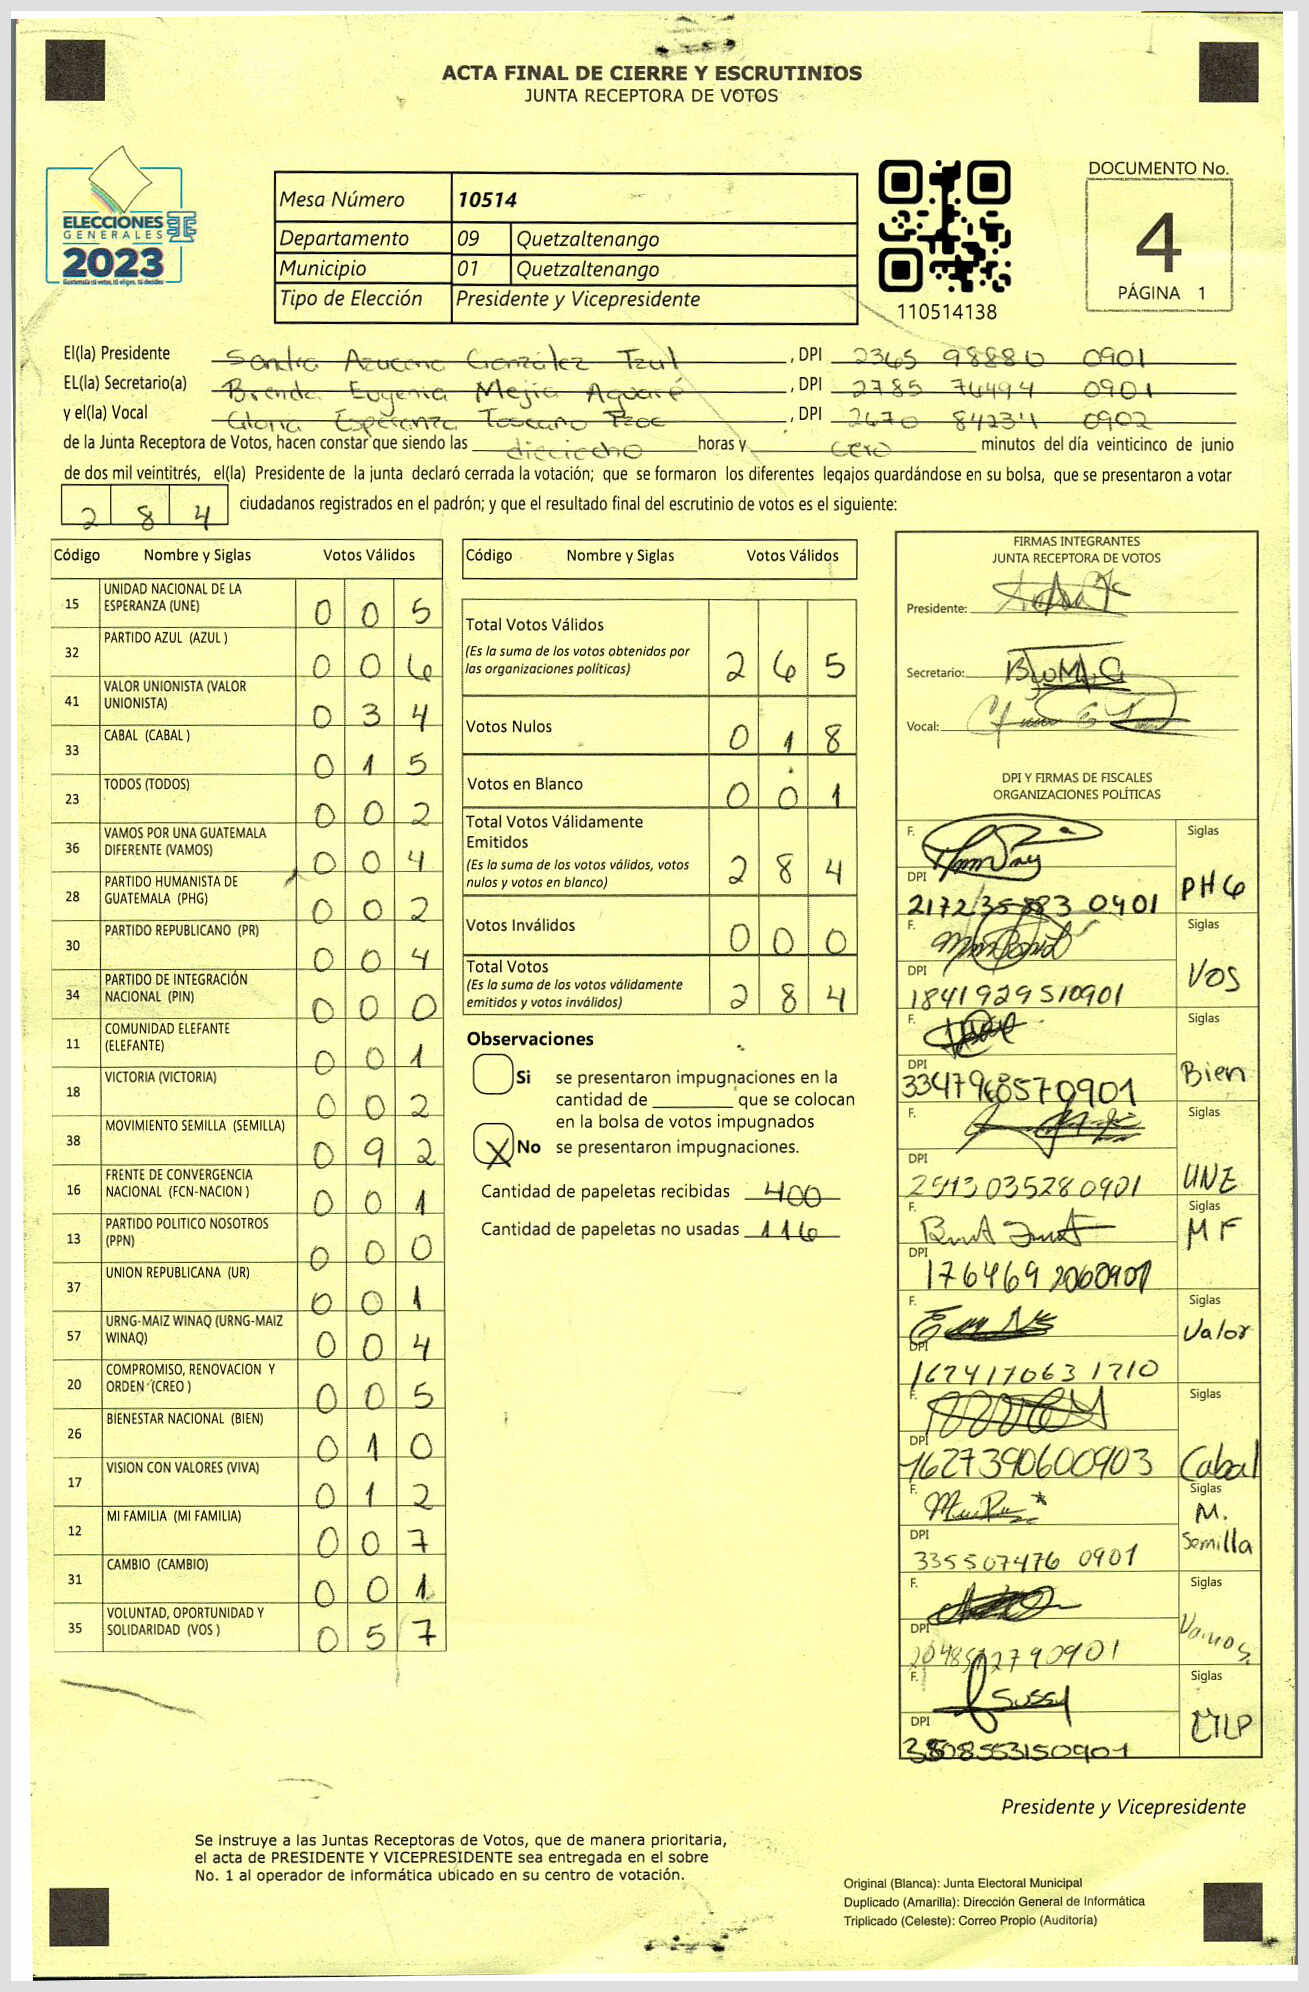 ACTA FINAL DE CIERRE Y ESCRUTINIOS
JUNTA RECEPTORA DE VOTOS
ELECCIONES
GENERALES
2023
Guatemala tú votas, tú eliges, tú decides
Mesa Número 10514
Departamento 09 Quetzaltenango
Municipio 01 Quetzaltenango
Tipo de Elección Presidente y Vicepresidente
110514138
DOCUMENTO No.
4
PÁGINA 1
El(la) Presidente Sandra Azucena González Tzul , DPI 2365 98880 0901
EL(la) Secretario(a) Brenda Eugenia Mejía Aguaré , DPI 2785 74494 0901
y el(la) Vocal Gloria Esperanza Toscano Tzoc , DPI 2670 84234 0902
de la Junta Receptora de Votos, hacen constar que siendo las dieciocho horas y cero minutos del día veinticinco de junio
de dos mil veintitrés, el(la) Presidente de la junta declaró cerrada la votación; que se formaron los diferentes legajos guardándose en su bolsa, que se presentaron a votar
2 8 4 ciudadanos registrados en el padrón; y que el resultado final del escrutinio de votos es el siguiente:
Código Nombre y Siglas Votos Válidos
15 UNIDAD NACIONAL DE LA ESPERANZA (UNE) 0 0 5
32 PARTIDO AZUL (AZUL ) 0 0 6
41 VALOR UNIONISTA (VALOR UNIONISTA) 0 3 4
33 CABAL (CABAL ) 0 1 5
23 TODOS (TODOS) 0 0 2
36 VAMOS POR UNA GUATEMALA DIFERENTE (VAMOS) 0 0 4
28 PARTIDO HUMANISTA DE GUATEMALA (PHG) 0 0 2
30 PARTIDO REPUBLICANO (PR) 0 0 4
34 PARTIDO DE INTEGRACIÓN NACIONAL (PIN) 0 0 0
11 COMUNIDAD ELEFANTE (ELEFANTE) 0 0 1
18 VICTORIA (VICTORIA) 0 0 2
38 MOVIMIENTO SEMILLA (SEMILLA) 0 9 2
16 FRENTE DE CONVERGENCIA NACIONAL (FCN-NACION ) 0 0 1
13 PARTIDO POLITICO NOSOTROS (PPN) 0 0 0
37 UNION REPUBLICANA (UR) 0 0 1
57 URNG-MAIZ WINAQ (URNG-MAIZ WINAQ) 0 0 4
20 COMPROMISO, RENOVACION Y ORDEN (CREO ) 0 0 5
26 BIENESTAR NACIONAL (BIEN) 0 1 0
17 VISION CON VALORES (VIVA) 0 1 2
12 MI FAMILIA (MI FAMILIA) 0 0 7
31 CAMBIO (CAMBIO) 0 0 1
35 VOLUNTAD, OPORTUNIDAD Y SOLIDARIDAD (VOS ) 0 5 7
Código Nombre y Siglas Votos Válidos
Total Votos Válidos 2 6 5
(Es la suma de los votos obtenidos por
las organizaciones políticas)
Votos Nulos 0 1 8
Votos en Blanco 0 0 1
Total Votos Válidamente
Emitidos 2 8 4
(Es la suma de los votos válidos, votos
nulos y votos en blanco)
Votos Inválidos 0 0 0
Total Votos 2 8 4
(Es la suma de los votos válidamente
emitidos y votos inválidos)
Observaciones
Si se presentaron impugnaciones en la
cantidad de ________ que se colocan
en la bolsa de votos impugnados
X No se presentaron impugnaciones.
Cantidad de papeletas recibidas 400
Cantidad de papeletas no usadas 116
FIRMAS INTEGRANTES
JUNTA RECEPTORA DE VOTOS
Presidente:
Secretario:
Vocal:
DPI Y FIRMAS DE FISCALES
ORGANIZACIONES POLÍTICAS
F. Siglas
DPI PHG
F. Siglas
DPI VOS
1841929510901
F. Siglas
DPI Bien
F. Siglas
DPI UNE
2513035280901
F. Siglas
DPI MF
176469 2060901
F. Siglas
DPI Valor
162417063 1210
F. Siglas
DPI Cabal
1627390600903
F. Siglas
DPI M. Semilla
335507476 0901
F. Siglas
DPI Vamos.
F. Sussy Siglas
DPI
Presidente y Vicepresidente
Se instruye a las Juntas Receptoras de Votos, que de manera prioritaria,
el acta de PRESIDENTE Y VICEPRESIDENTE sea entregada en el sobre
No. 1 al operador de informática ubicado en su centro de votación.
Original (Blanca): Junta Electoral Municipal
Duplicado (Amarilla): Dirección General de Informática
Triplicado (Celeste): Correo Propio (Auditoría)